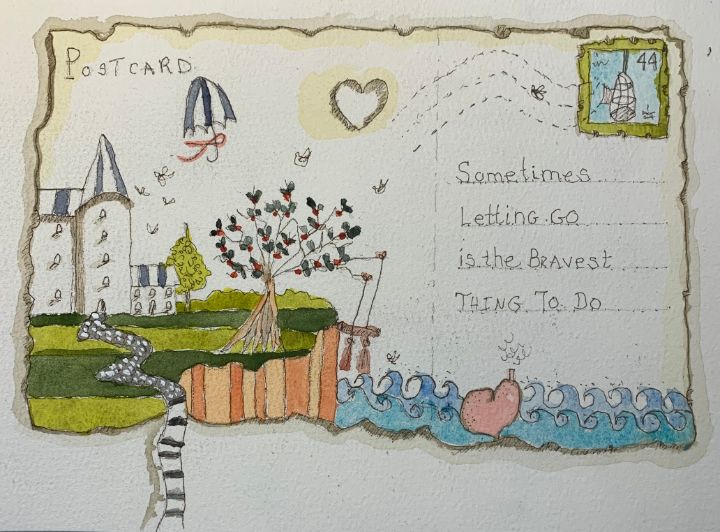 POSTCARD
44
Sometimes
Letting GO
is the BRAVEST
THING TO DO